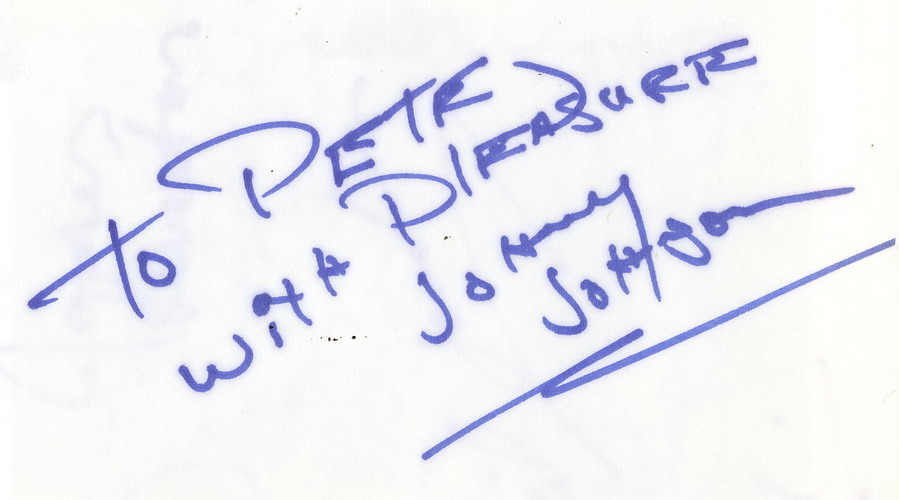 TO PETE
WITH PLEASURE
JOHNNY
JOHNSON